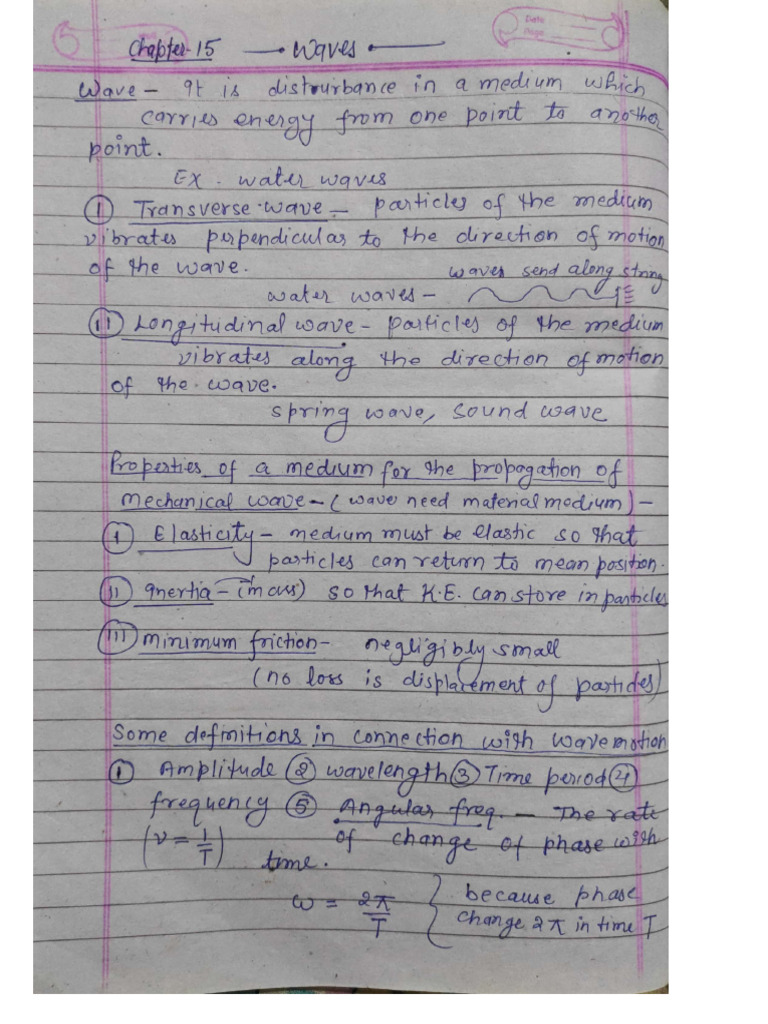 Date
Page
Chapter-15 — Waves —
Wave - It is distrurbance in a medium which
carries energy from one point to another
point.
Ex. water waves
(I) Transverse wave - particles of the medium
vibrates perpendicular to the direction of motion
of the wave.
waves send along string
water waves -
(II) Longitudinal wave - particles of the medium
vibrates along the direction of motion
of the wave.
spring wave, sound wave
Properties of a medium for the propagation of
mechanical wave - (wave need material medium) -
(I) Elasticity - medium must be elastic so that
particles can return to mean position.
(II) Inertia - (mass) so that K.E. can store in particles
(III) minimum friction - negligibly small
(no loss is displacement of particles)
Some definitions in connection with wave motion
① Amplitude ② wavelength ③ Time period ④
frequency ⑤ Angular freq. - The rate
(ν = 1/T) of change of phase with
time.
ω = 2π/T { because phase
change 2π in time T